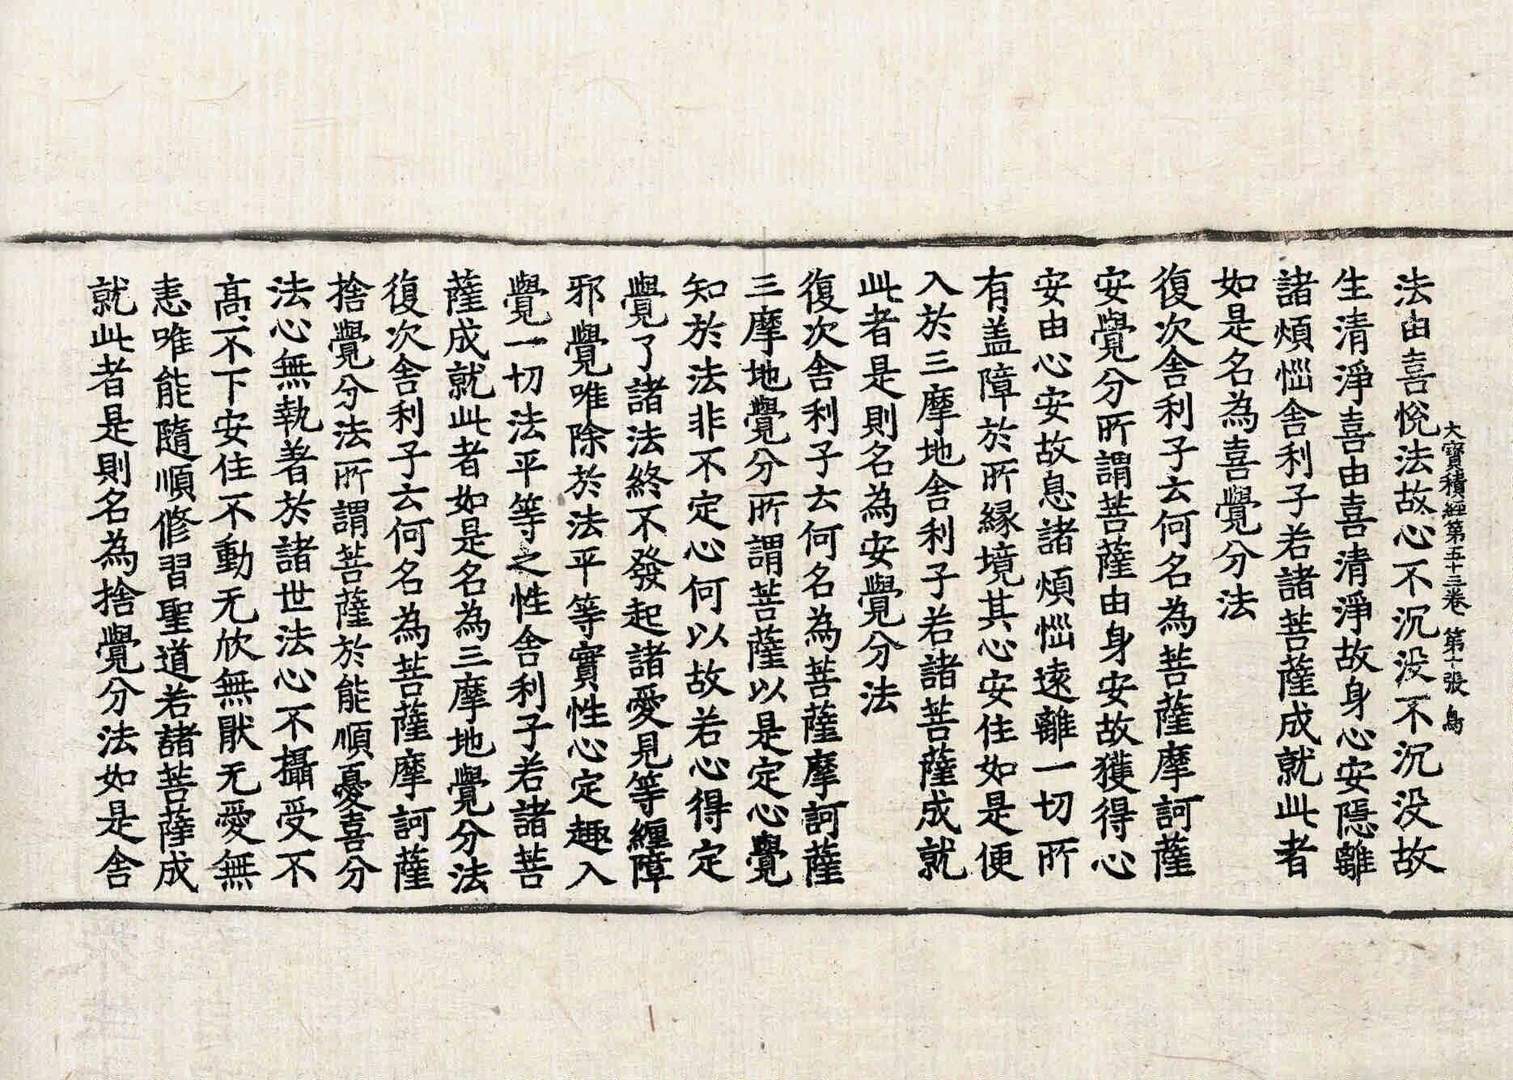 大寶積經第五十三卷 第十張 鳥
法由喜悅法故心不沉没不沉没故
生清淨喜由喜清淨故身心安隱離
諸煩惱舍利子若諸菩薩成就此者
如是名為喜覺分法
復次舍利子云何名為菩薩摩訶薩
安覺分所謂菩薩由身安故獲得心
安由心安故息諸煩惱遠離一切所
有盖障於所緣境其心安住如是便
入於三摩地舍利子若諸菩薩成就
此者是則名為安覺分法
復次舍利子云何名為菩薩摩訶薩
三摩地覺分所謂菩薩以是定心覺
知於法非不定心何以故若心得定
覺了諸法終不發起諸愛見等纏障
邪覺唯除於法平等實性心定趣入
覺一切法平等之性舍利子若諸菩
薩成就此者如是名為三摩地覺分法
復次舍利子云何名為菩薩摩訶薩
捨覺分法所謂菩薩於能順憂喜分
法心無執著於諸世法心不攝受不
髙不下安住不動无欣無猒无愛無
恚唯能隨順修習聖道若諸菩薩成
就此者是則名為捨覺分法如是舍